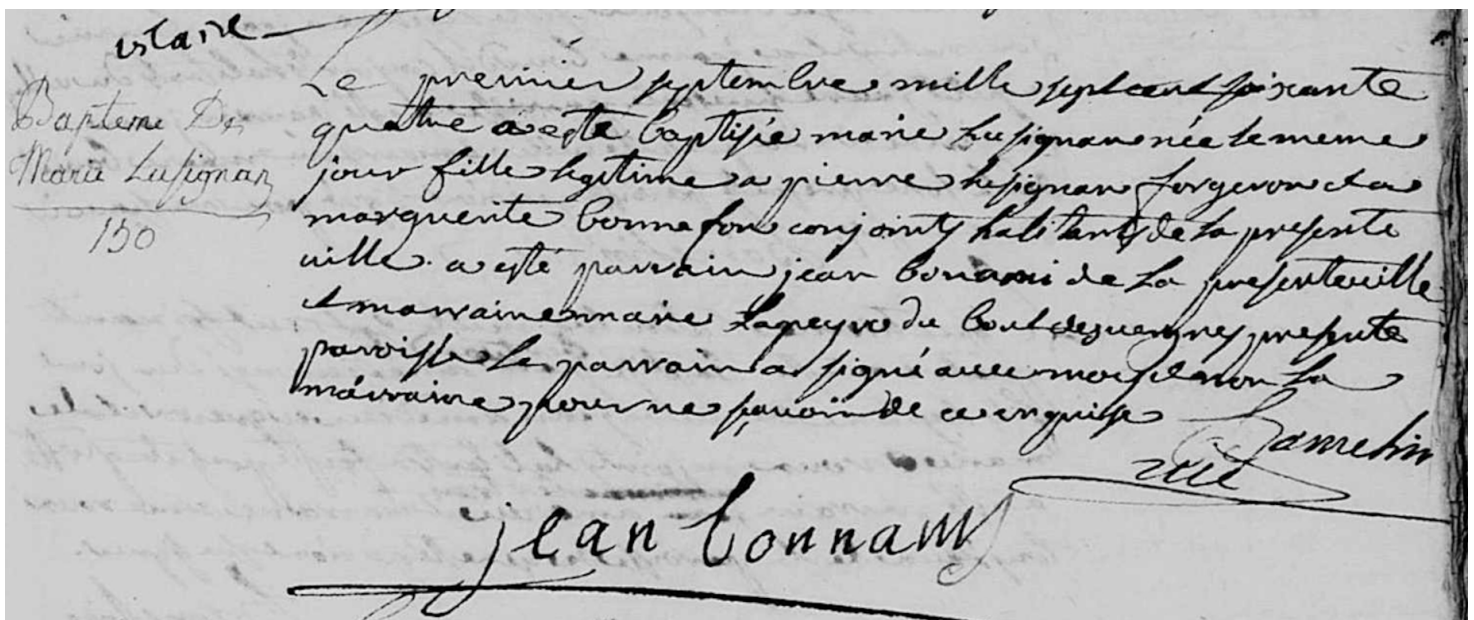 vicaire
Bapteme De
Marie Lusignan
150
Le premier septembre mille sept cent soixante
quattre a esté baptisée marie Lusignan née le meme
jour fille legitime a pierre Lusignan forgeron et a
marguerite bonnefon conjoints habitants de la presente
ville a esté parrain jean bonami de la presente ville
et marraine marie Lapeyre du bout des presente
paroisse le parrain a signé avec moi et non la
marraine pour ne sçavoir de ce enquise
Hamelin
vice
jean bonnamy